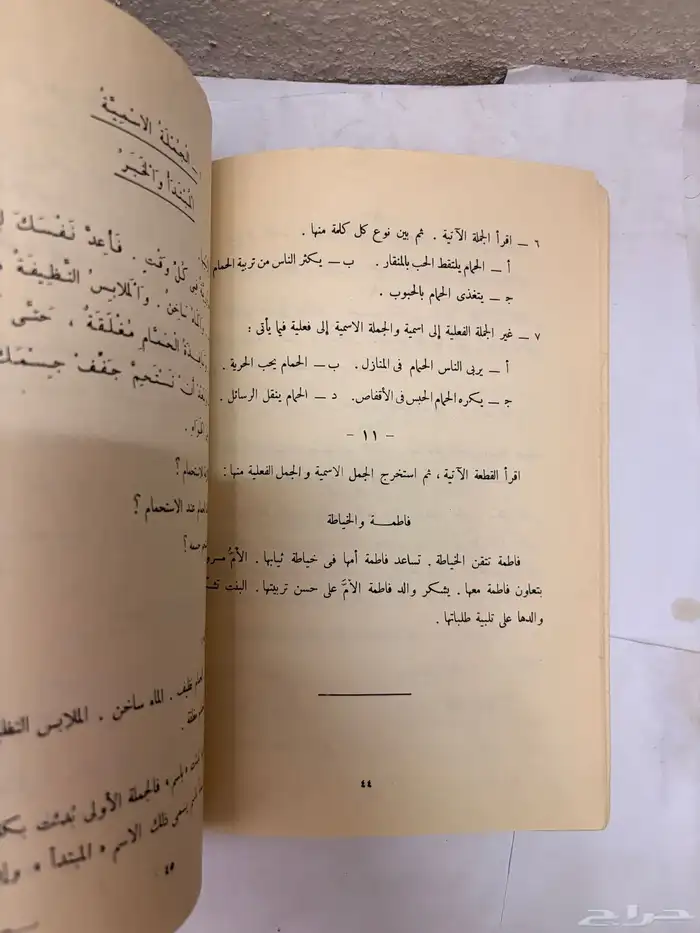 ٦ ــ اقرأ الجملة الآتية . ثم بين نوع كل كلمة منها .
أ ــ الحمام يلتقط الحب بالمنقار . ب ــ يكثر الناس من تربية الحمام
جـ ــ يتغذى الحمام بالحبوب .
٧ ــ غير الجملة الفعلية إلى اسمية والجملة الاسمية إلى فعلية فيما يأتى :
أ ــ يربى الناس الحمام فى المنازل . ب ــ الحمام يحب الحرية .
جـ ــ يكره الحمام الحبس فى الأقفاص . د ــ الحمام ينقل الرسائل .
- ١١ -
اقرأ القطعة الآتية ، ثم استخرج الجمل الاسمية والجمل الفعلية منها :
فاطمة والخياطة
فاطمة تتقن الخياطة . تساعد فاطمة أمها فى خياطة ثيابها . الأمُّ
بتعاون فاطمة معها . يشكر والد فاطمة الأمَّ على حسن تربيتها . البنت
والدها على تلبية طلباتها .
٤٤
ــ الْجُمْلَةُ الاسْمِيَّةُ
الْمُبْتَدَأُ وَالْخَبَرُ
كُلَّ وَقْتٍ . فَأَعِدْ نَفْسَكَ
سَاخِنٌ . وَالْمَلَابِسُ النَّظِيفَةُ
الْحَمَّامِ مُغْلَقَةٌ ، حَتَّى
أَنْ تَسْتَحِمَّ جَفِّفْ جِسْمَكَ
الاستحمام ؟
عند الاستحمام ؟
نظيف . الماء ساخن . الملابس
فالجملة الأولى بُدئت
يسمى ذلك الاسم « المبتدأ »
٤٥
حراج